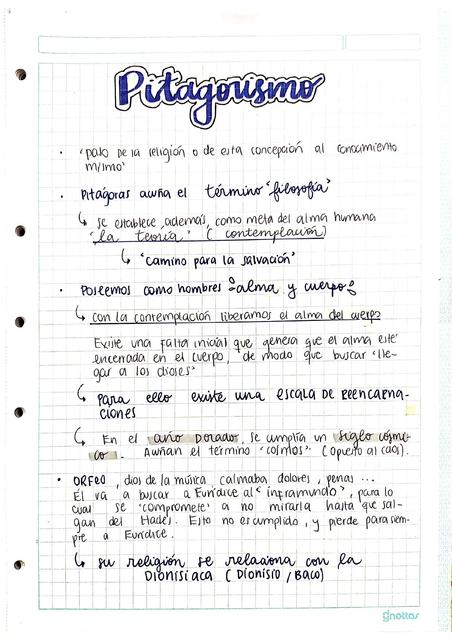 Pitagorismo
· 'paso de la religión o de esta concepción al conocimiento
mismo'
· Pitágoras acuña el término 'filosofía'
↳ se establece, además, como meta del alma humana
'la teoría' (contemplación)
↳ 'camino para la salvación'
· Poseemos como hombres alma y cuerpo
↳ con la contemplación liberamos el alma del cuerpo
Existe una falta inicial que genera que el alma esté
encerrada en el cuerpo, de modo que buscar 'lle-
gar a los dioses'
↳ Para ello existe una escala de REENCARNA-
CIONES
↳ En el año Dorado, se cumplía un siglo cósmi-
co. Acuñan el término 'cosmos' (opuesto al caos).
· ORFEO, dios de la música, calmaba dolores, penas ...
Él va a buscar a Eurídice al 'inframundo', para lo
cual se 'compromete' a no mirarla hasta que sal-
gan del Hades. Esto no es cumplido, y pierde para siem-
pre a Eurídice.
↳ su religión se relaciona con la
DIONISIACA (DIONISIO / BACO)
gnottas